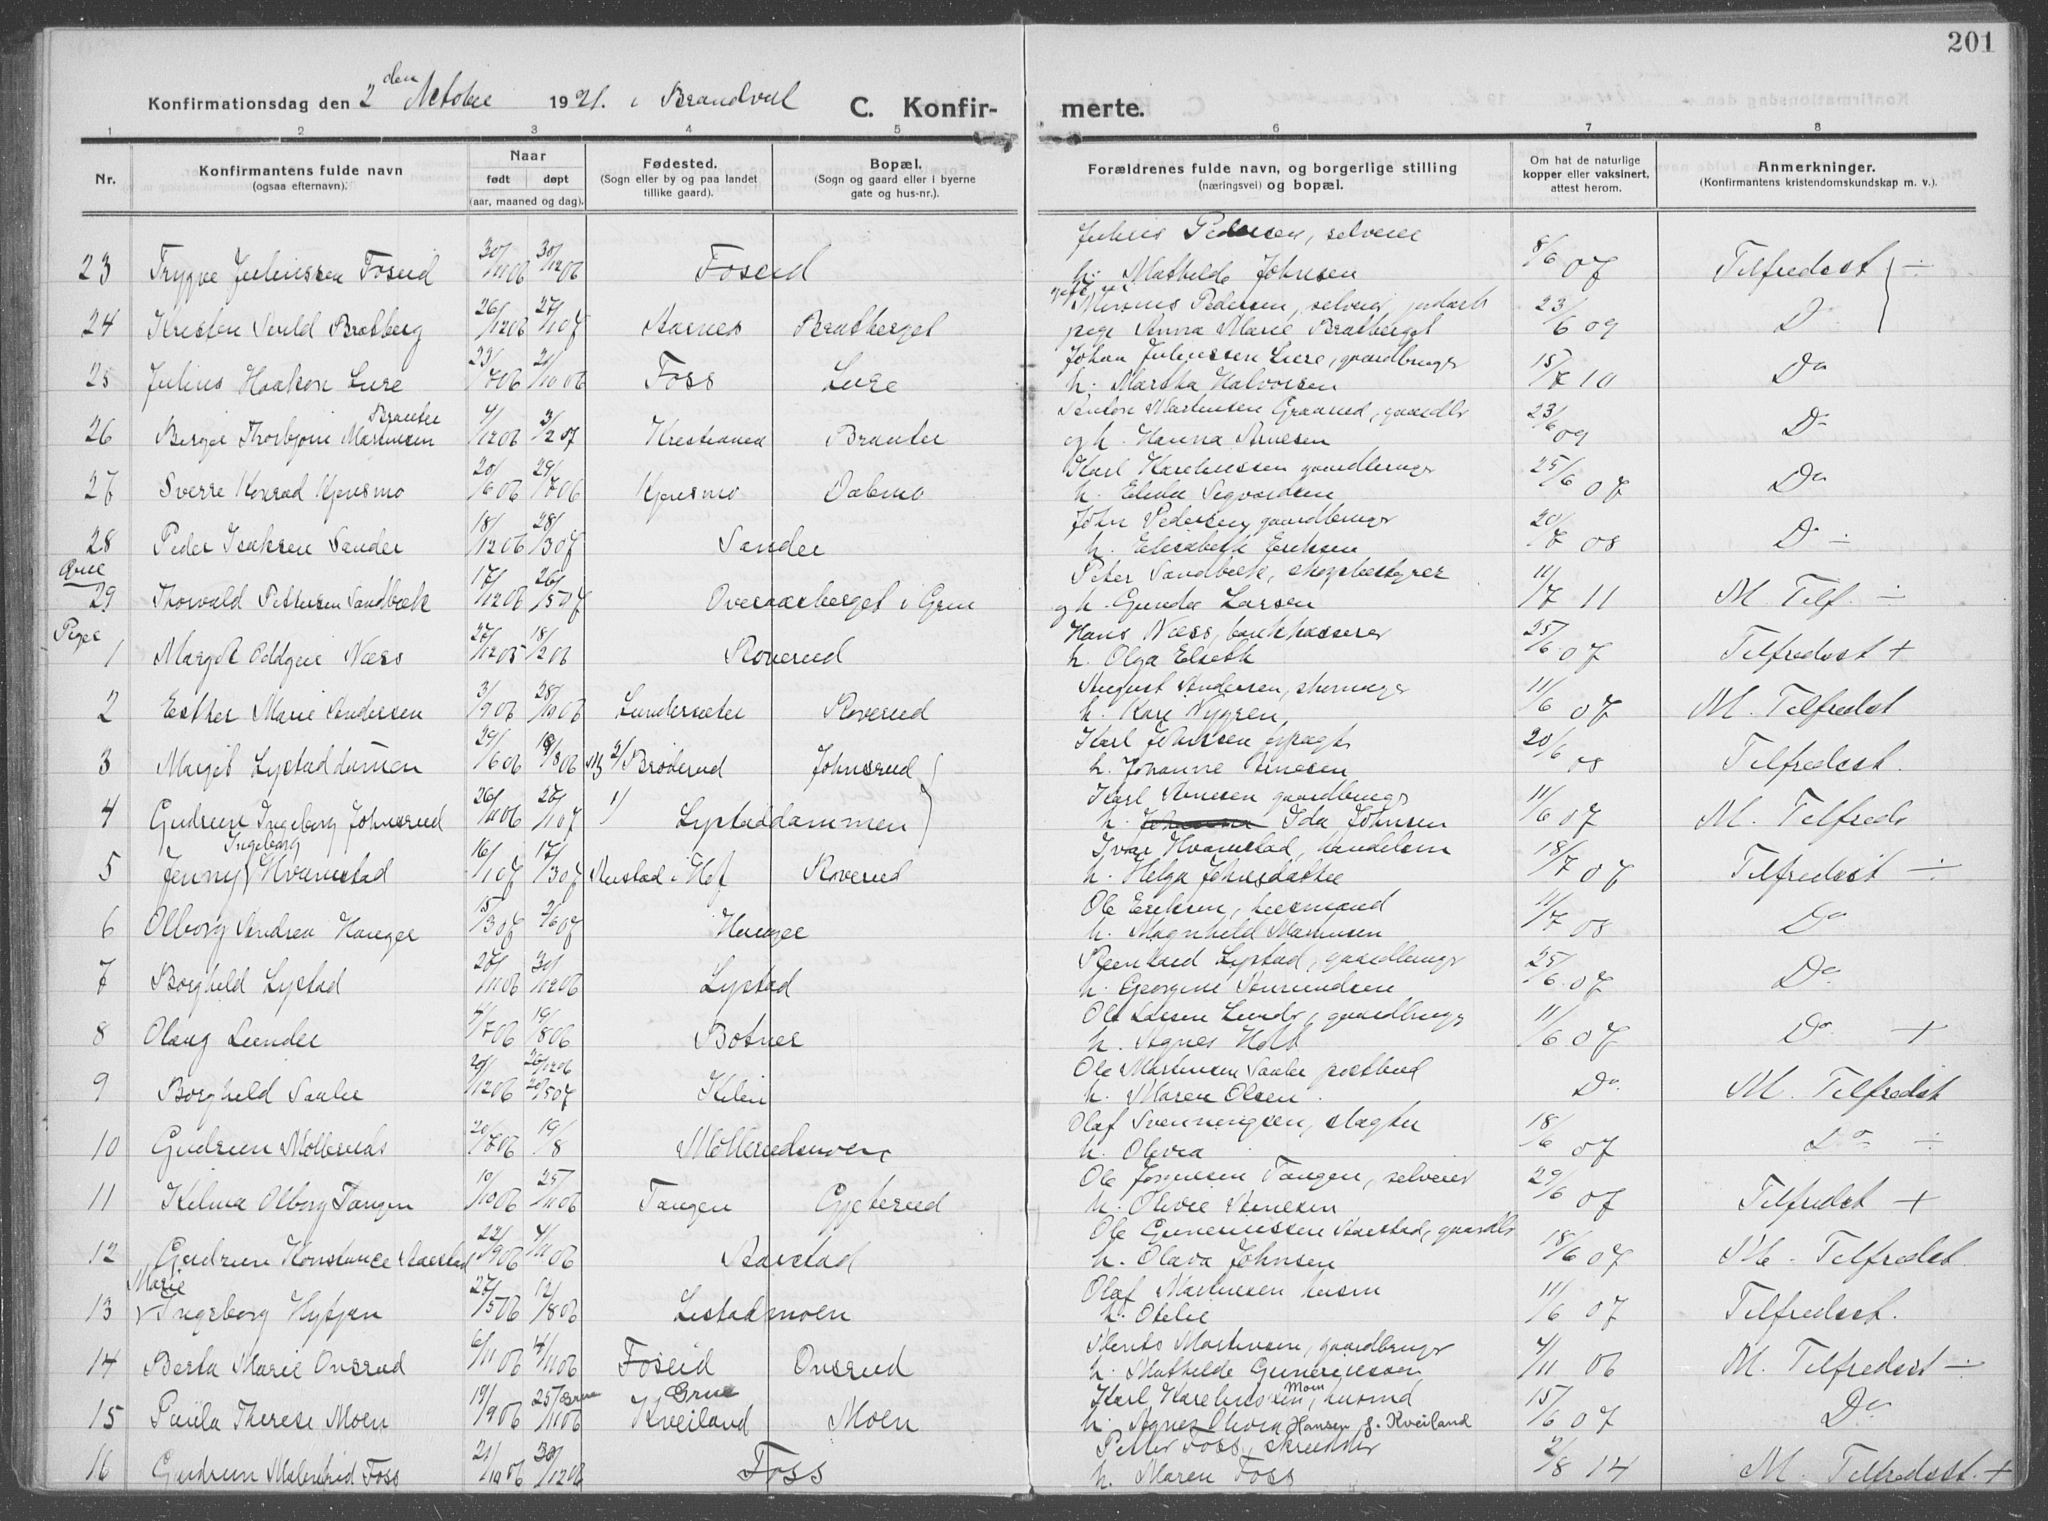 201
Konfirmationsdag den 2den October 1921. i Brandval C. Konfir- merte.
1 2 3 4 5 6 7 8
Nr.
Konfirmantens fulde navn
(ogsaa efternavn).
Naar
født døpt
(aar, maaned og dag).
Fødested.
(Sogn eller by og paa landet
tillike gaard).
Bopæl.
(Sogn og gaard eller i byerne
gate og hus-nr.).
Forældrenes fulde navn, og borgerlige stilling
(næringsvei) og bopæl.
Om hat de naturlige
kopper eller vaksinert,
attest herom.
Anmerkninger.
(Konfirmantens kristendomskundskap m. v.).
Julius Pedersen, selveier
23 Trygve Juliussen Foseid 30/11 06 30/12 06 Foseid h. Mathilde Johnsen 8/6 07 Tilfredsst ÷
Pedersen, selveier, jordarb
24 Kristen Bratberg 26/12 06 27/1 07 Aarnes Bratberget pige Anna Marie Bratberget 23/6 09 Do
Johan Juliussen Lure, gaardbruger
25 Julius Haakon Lure 23/7 06 21/10 06 Foss Lure h. Martha Halvorsen 15/7 10 Do
Branter
Anton Martinsen Graanud, gaardbr
26 Birger Thorbjørn Martinsen 4/12 06 3/2 07 Kristiania Branter og h. Hanna Arnesen 23/6 09 Do
Karl Kareliussen gaardbruger
27 Sverre Konrad Kjensmo 20/6 06 29/7 06 Kjensmo Dalmo h. Elida Sigvardsen 25/6 07 Do
John Pedersen, gaardbruger
28 Peder Isaksen Sander 18/12 06 28/3 07 Sander h. Elisabeth Eriksen 20/7 08 Do ÷
Grue
Peter Sandbæk, skogbestyrer
29 Thorvald Pettersen Sandbæk 17/12 06 26/5 07 Overaasberget i Grue og h. Gunda Larsen 11/7 11 M. Tilf. ÷
Piger
Hans Næss, bankkasserer
1 Margit Oddgue Næss 27/12 05 18/2 06 Roverud h. Olga Elseth 25/6 07 Tilfredsst +
August Andersen, skomager
2 Esther Marie Andersen 3/9 06 28/10 06 Lundersæter Roverud h. Kari Nygren, 11/6 07 M. Tilfredsst
Karl Johnsen
3 Margit Lystaddamen 29/6 06 19/8 06 2/ Brøderud Johnsrud h. Johanne Arnesen 20/6 08 Tilfredsst.
Karl Arnesen gaardbruger
4 Gudrun Ingeborg Johnsrud 26/11 06 27/1 07 1/ Lystaddammen h. Ida Johnsen 11/6 07 M. Tilfreds
Ingeborg
Ivar Hvamstad, handelsm
5 Jenny Hvamstad 16/1 07 17/3 07 i Hof Roverud h. Helga Johnsdatter 18/7 07 Tilfredsst ÷
Ole Eriksen, husmand
6 Olborg Andrea Hauger 15/3 07 2/6 07 Hauger h. Magnhild Magnusen 11/7 08 Do
Reinhard Lystad, gaardbruger
7 Borghild Lystad 27/11 06 30/12 06 Lystad h. Georgine Amundsen 25/6 07 Do
Ole Larsen Lunder, gaardbruger
8 Olaug Lunder 4/7 06 19/8 06 Botner h. Agnes Holt 11/6 07 Do +
26/12 06
Ole Martinsen Saaler postbud
9 Borghild Saaler 20/12 06 20/5 07 Kilen h. Maren Olsen. Do M. Tilfredsst
Olaf Svenningsen, slagter
10 Gudrun Møllerud 20/7 06 19/8 Møllerudmoen h. Olivia 18/6 07 Do ÷
Ole Jørgensen Tangen, selveier
11 Hilma Olborg Tangen 10/10 06 25/11 06 Tangen Gjeterud h. Olivie Arnesen 29/6 07 Tilfredsst +
Ole Gunerussen Aarstad, gaardbr
12 Gudrun Konstance Aarstad 22/9 06 4/11 06 Aarstad h. Olava Johnsen 18/6 07 M. Tilfredsst.
Marie
Olaf Martinsen husm
13 Ingeborg Hytjan 27/5 06 12/8 06 Listadmoen h. Otelie 11/6 07 Tilfredsst.
Martinsen, gaardbruger
14 Berta Marie Onsrud 6/11 06 4/11 06 Foseid Onsrud h. Mathilde Gunerussen 7/11 06 M. Tilfredsst ÷
Grue
Karl Kareliussen Moen, husmd
15 Paula Therese Moen 19/9 06 25/11 06 Kveiland Moen h. Agnes Olivia Hansen f. Kveiland 15/6 07 Do
Petter Foss, skrædder
16 Gudrun Malmfrid Foss 21/10 06 30/12 06 Foss h. Maren Foss 7/8 14 M. Tilfredsst. +